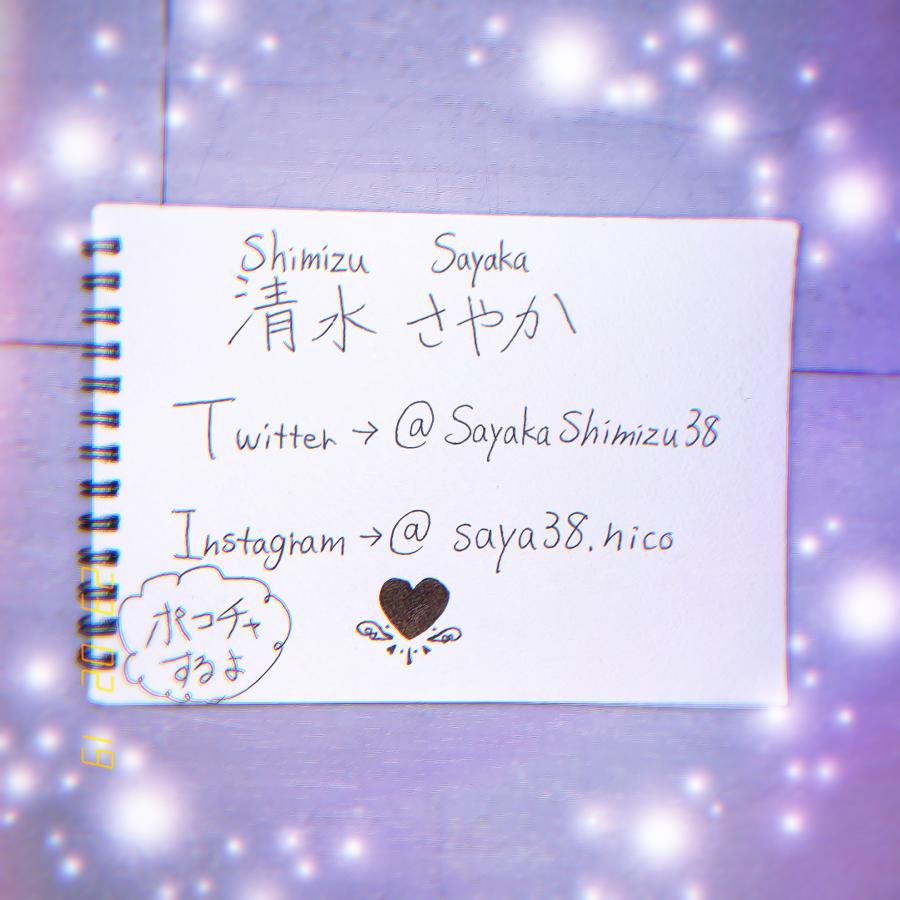 Shimizu Sayaka
清水 さやか
Twitter → @SayakaShimizu38
Instagram → @saya38.nico
ポコチャ
するよ